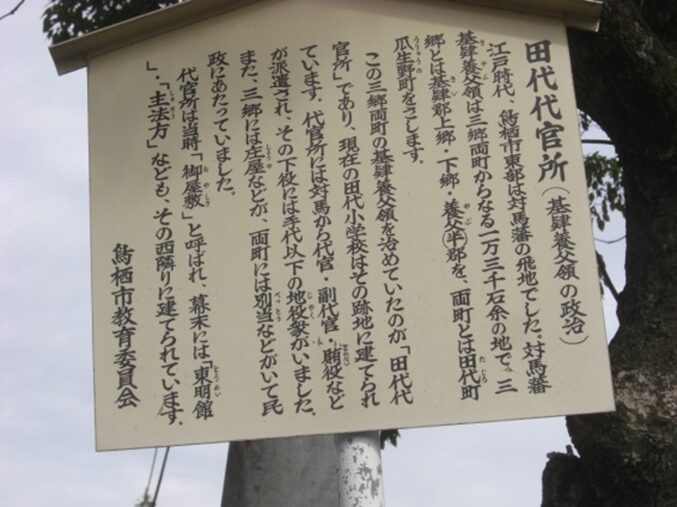 田代代官所(基肄養父領の政治)
江戸時代、鳥栖市東部は対馬藩の飛地でした。対馬藩
基肄養父領は三郷両町からなる一万三千石余の地で、三
郷とは基肄郡上郷・下郷・養父半郡を、両町とは田代町
瓜生野町をさします。
この三郷両町の基肄養父領を治めていたのが「田代代
官所」であり、現在の田代小学校はその跡地に建てられ
ています。代官所には対馬から代官・副代官・賄役など
が派遣され、その下役には手代以下の地役衆がいました。
また、三郷には庄屋などが、両町には別当などがいて民
政にあたっていました。
代官所は当時「御屋敷」と呼ばれ、幕末には「東明館
」・「主法方」なども、その西隣りに建てられています。
鳥栖市教育委員会